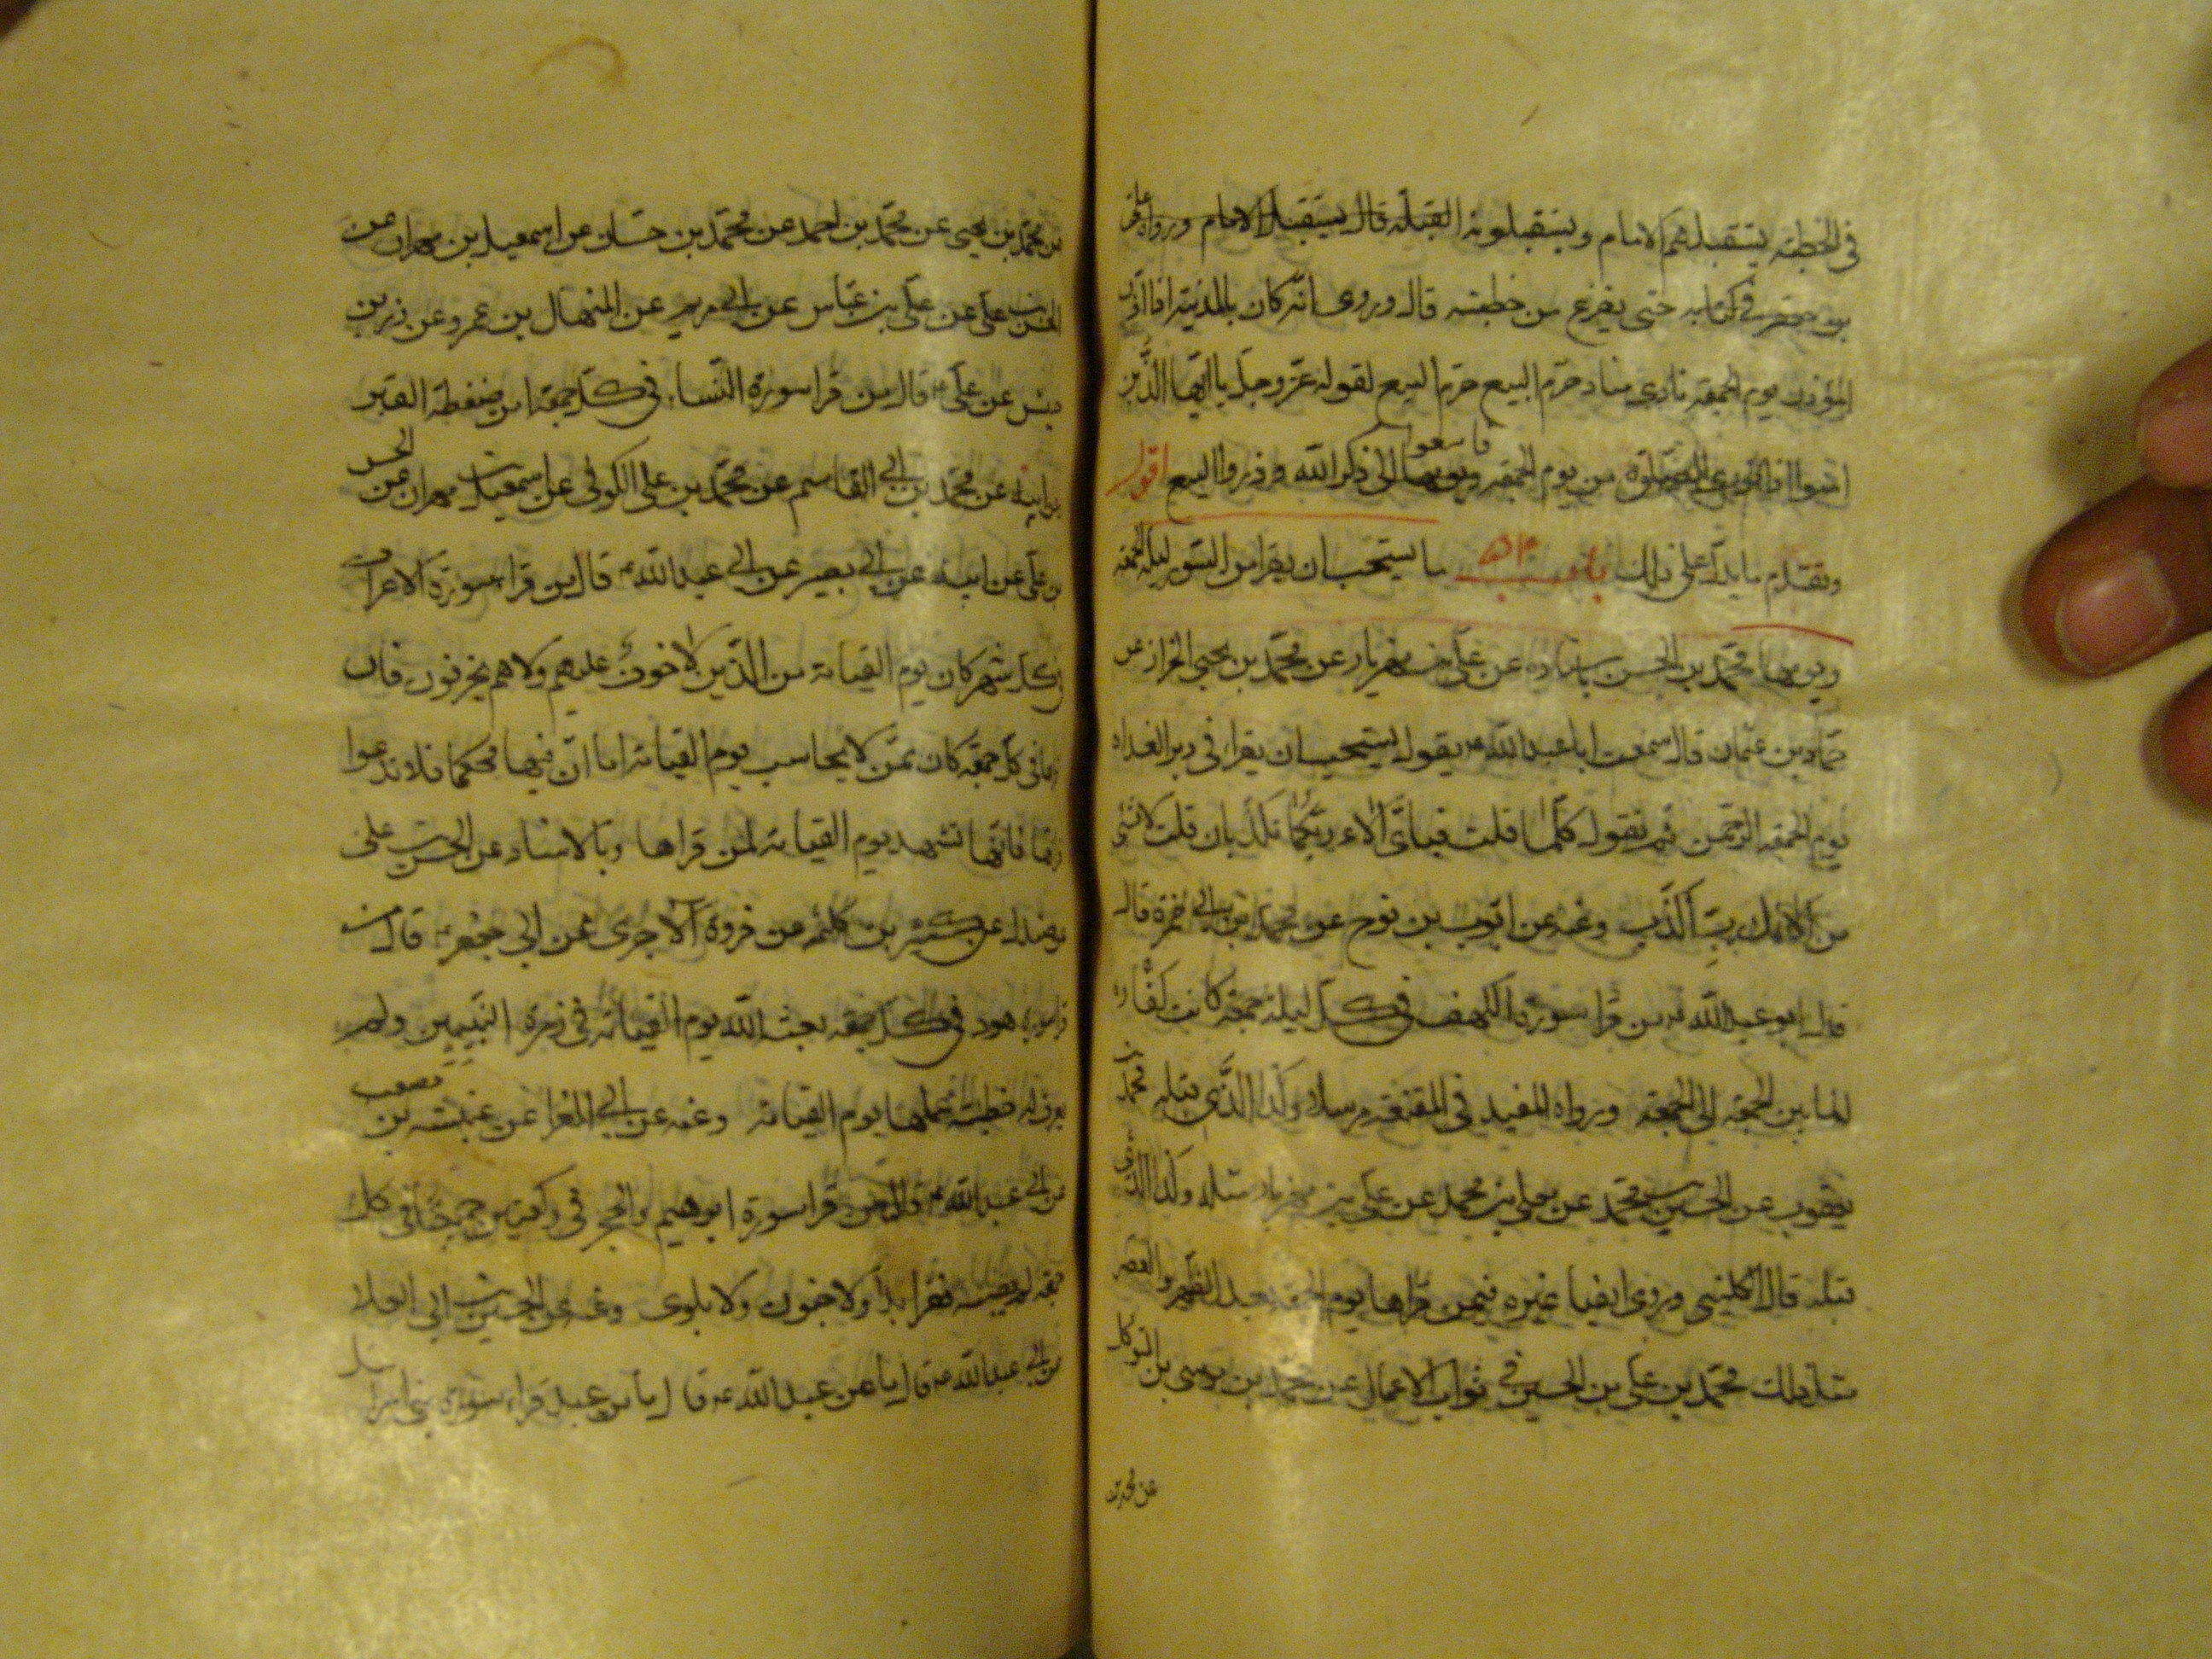 في الخطبة يستقبلهم الامام ويستقبلونه القبلة قال يستقبل الامام ورواه علي
بن جعفر في كتابه حتى يفرغ من خطبته قال وروى انه كان بالمدينة اذا اذن
المؤذن يوم الجمعة نادى مناد حرم البيع حرم البيع لقوله عز وجل يا ايها الذين
امنوا اذا نودي للصلوة من يوم الجمعة فاسعوا الى ذكر الله وذروا البيع اقول
وتقدم ما يدل على ذلك باب ٥٤ ما يستحب ان يقرا من السور ليلة الجمعة
ويومها محمد بن الحسن باسناده عن علي بن مهزيار عن محمد بن يحيى الخزاز عن
حماد بن عثمان قال سمعت ابا عبدالله ع يقول يستحب ان يقرا في دبر الغداة
يوم الجمعة الرحمن ثم تقول كلما قلت فباي الاء ربكما تكذبان قلت لا بشئ
من الائك رب اكذب وعنه عن ايوب بن نوح عن محمد بن ابي حمزة قال
قال ابو عبدالله ع من قرا سورة الكهف في كل ليلة جمعة كانت كفارة
لما بين الجمعة الى الجمعة ورواه المفيد في المقنعة مرسلا وكذا الذي قبله محمد بن
يعقوب عن الحسين بن محمد عن معلى بن محمد عن علي بن مهزيار مثله وكذا الذي
قبله قال الكليني وروى ايضا غيره فيمن قراها يوم الجمعة بعد الظهر والعصر
مثل ذلك محمد بن علي بن الحسين في ثواب الاعمال عن محمد بن موسى بن المتوكل
عن محمد بن
عن محمد بن يحيى عن محمد بن احمد عن محمد بن حسان عن اسمعيل بن مهران عن
الحسن بن علي عن علي بن عباس عن ابي مريم عن المنهال بن عمرو عن زر بن
حبش عن علي ع قال من قرا سورة النساء في كل جمعة امن ضغطة القبر
عن محمد بن ابي القاسم عن محمد بن علي الكوفي عن اسمعيل بن مهران عن الحسن
بن علي عن ابيه عن ابي بصير عن ابي عبدالله ع قال من قرا سورة الاعراف
في كل شهر كان يوم القيامة من الذين لا خوف عليهم ولا هم يحزنون فان
قراها في كل جمعة كان ممن لا يحاسب يوم القيامة اما ان فيها محكما فلا تدعوا
قراءتها فانها تشهد يوم القيامة لمن قراها وبالاسناد عن الحسن بن علي
عن صندل عن كثير بن كلثمه عن فروة الاجري عن ابي جعفر ع قال من
قرا سورة هود في كل جمعة بعثه الله يوم القيامة في زمرة النبيين ولم
يعرف له خطيئة عملها يوم القيامة وعنه عن ابي المغرا عن عنبسة بن مصعب
عن ابي عبدالله ع قال من قرا سورة ابرهيم والحجر في ركعتين جميعا في كل
جمعة لم يصبه فقر ابدا ولا جنون ولا بلوى وعنه عن الحسين بن ابي العلا
عن ابي عبدالله ع قال ما من عبد قراء سورة بني اسرائيل